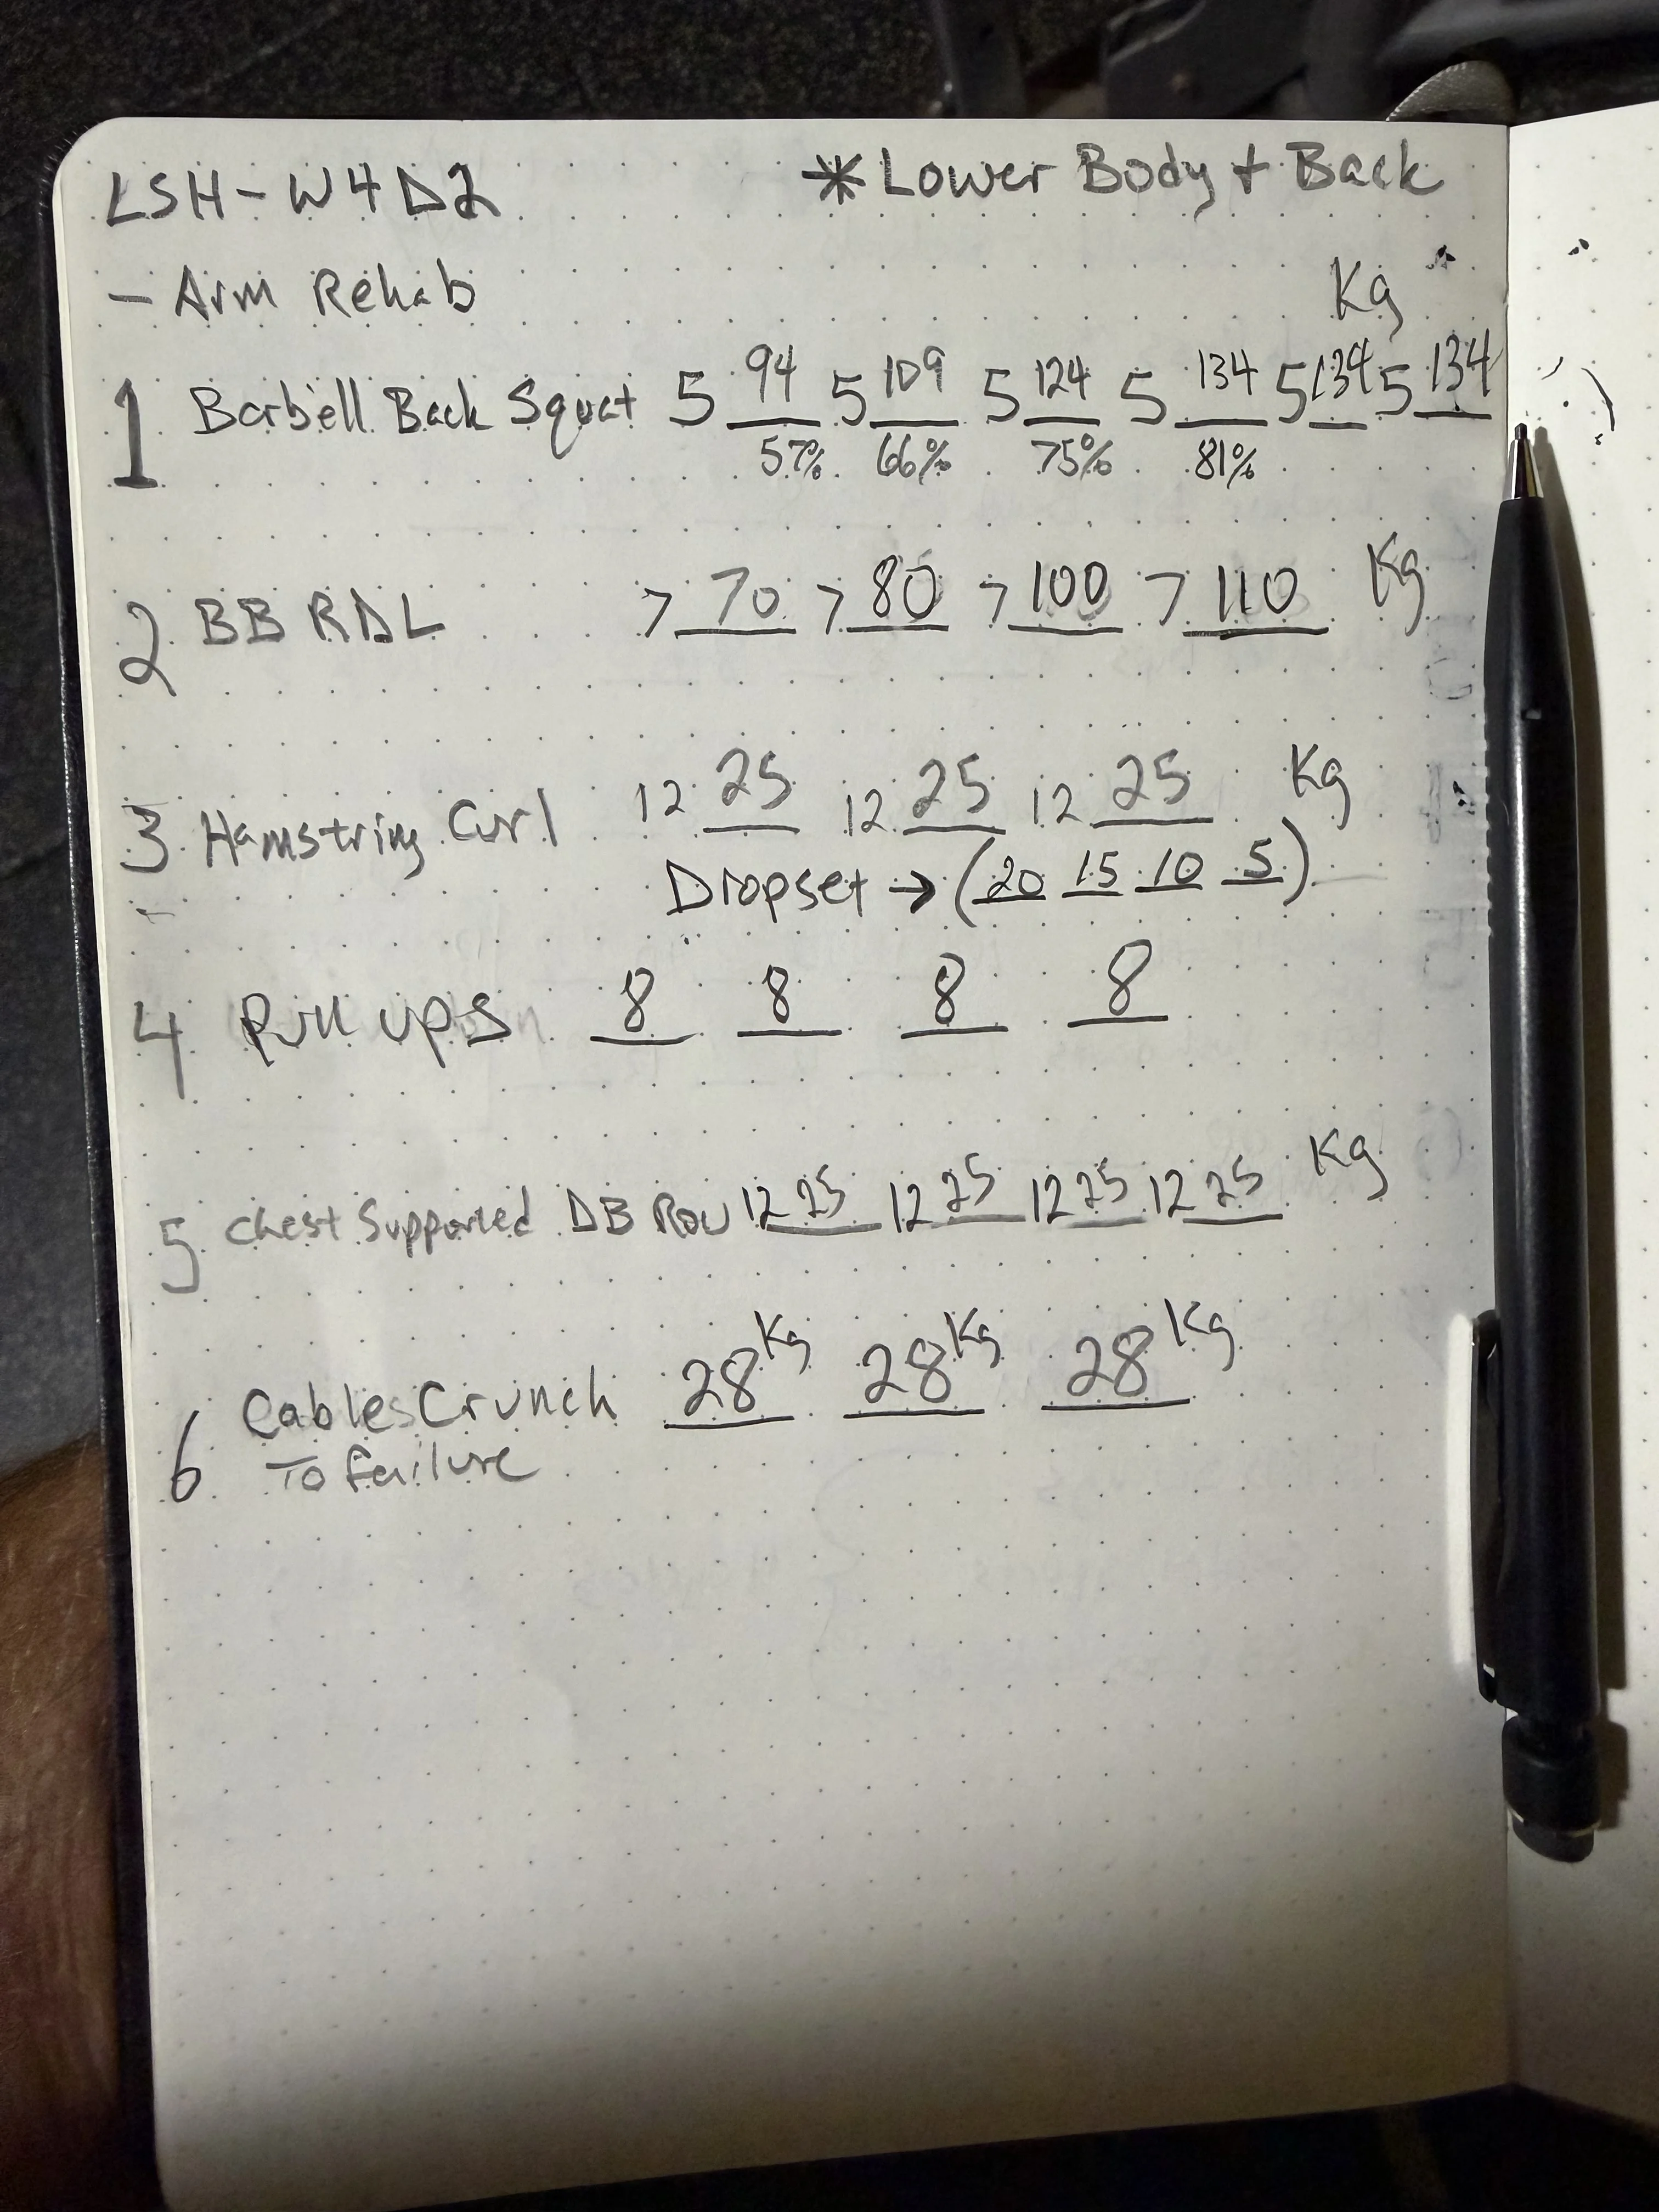 LSH-W4D2 *Lower Body + Back
- Arm Rehab
Kg
1 Barbell Back Squat 5 94 5 109 5 124 5 134 5 134 5 134
57% 66% 75% 81%
2 BB RDL 7 70 7 80 7 100 7 110 Kg
3 Hamstring Curl 12 25 12 25 12 25 Kg
Dropset → (20 15 10 5)
4 Pull ups 8 8 8 8
5 Chest Supported DB Row 12 25 12 25 12 25 12 25 Kg
6 Cables Crunch 28 Kg 28 Kg 28 Kg
To failure